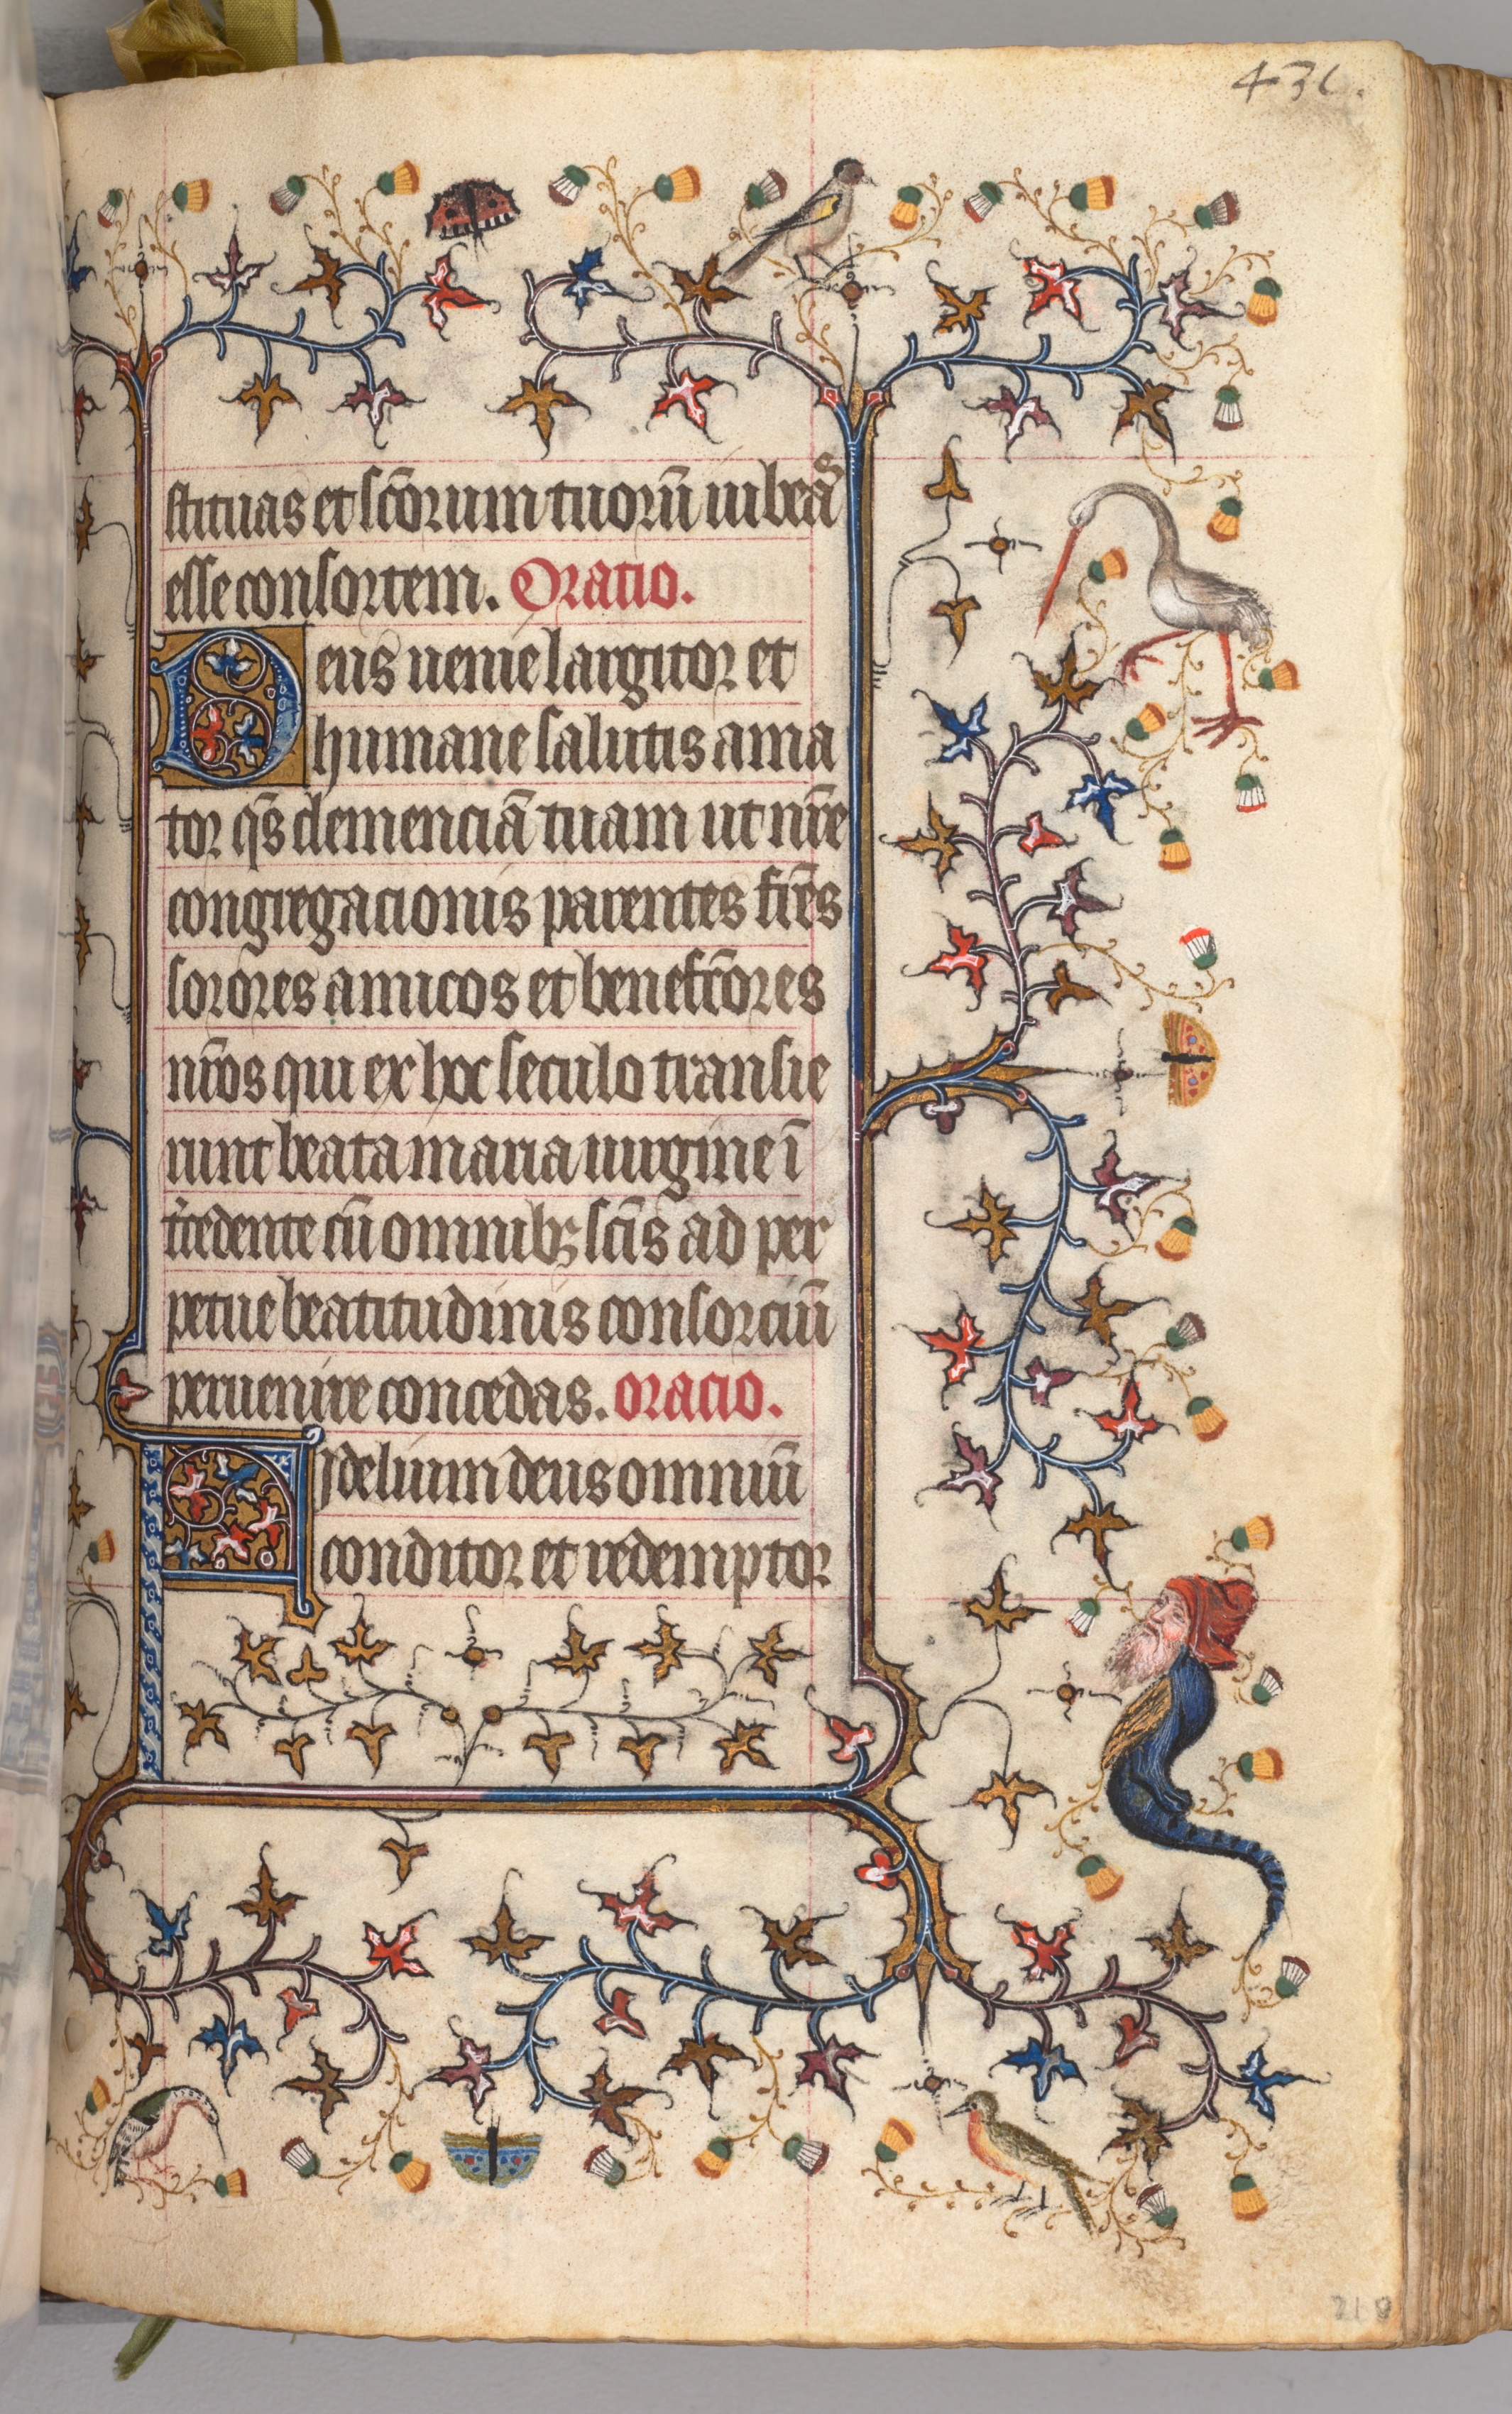 431.
stituas et scōrum tuorū iubeas
esse consortem. Oratio.
Deus uenie largitor et
humane salutis ama
tor qs̄ clemenciā tuam ut nr̄e
congregacionis parentes fr̄es
sorores amicos et benefc̄ores
nr̄os qui ex hoc seculo transie
runt beata maria uirgine ī
t̉cedente cū omnibꝫ scīs ad per
petue beatitudinis consorciū
peruenire concedas. oracio.
Fidelium deus omniū
conditor et redemptor
218